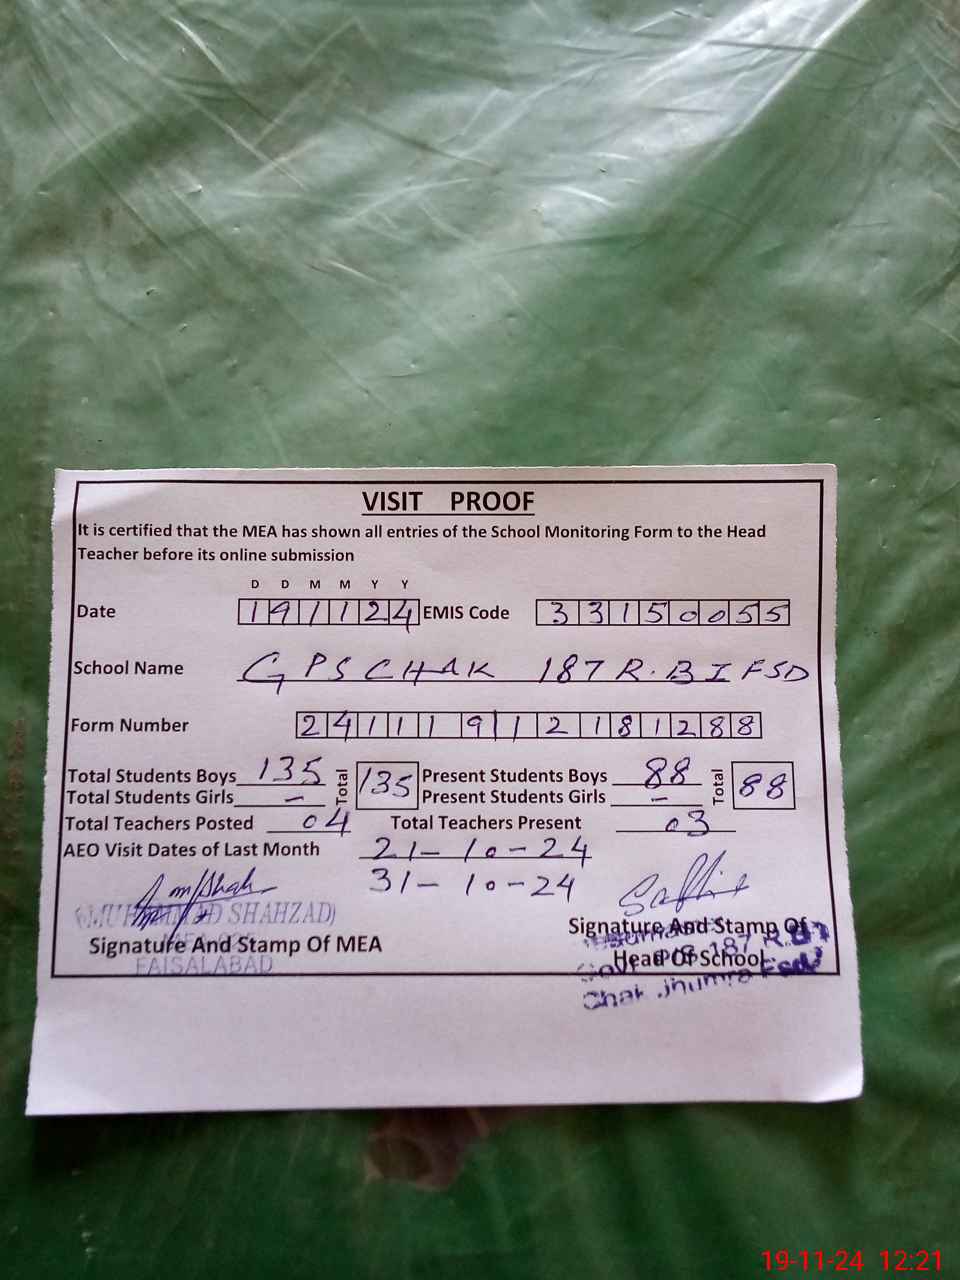 VISIT PROOF
It is certified that the MEA has shown all entries of the School Monitoring Form to the Head
Teacher before its online submission
D D M M Y Y
Date 191124 EMIS Code 33150055
School Name GPS CHAK 187 R.B I FSD
Form Number 241119112181288
Total Students Boys 135 Total 135 Present Students Boys 88 Total 88
Total Students Girls – Present Students Girls –
Total Teachers Posted 04 Total Teachers Present 03
AEO Visit Dates of Last Month 21-10-24
31-10-24
(MUHAMMAD SHAHZAD)
Signature And Stamp Of MEA
FAISALABAD
Signature And Stamp Of
Head Of School
Govt. P/S 187 R.B
Chak Jhumra Fsd
19-11-24 12:21